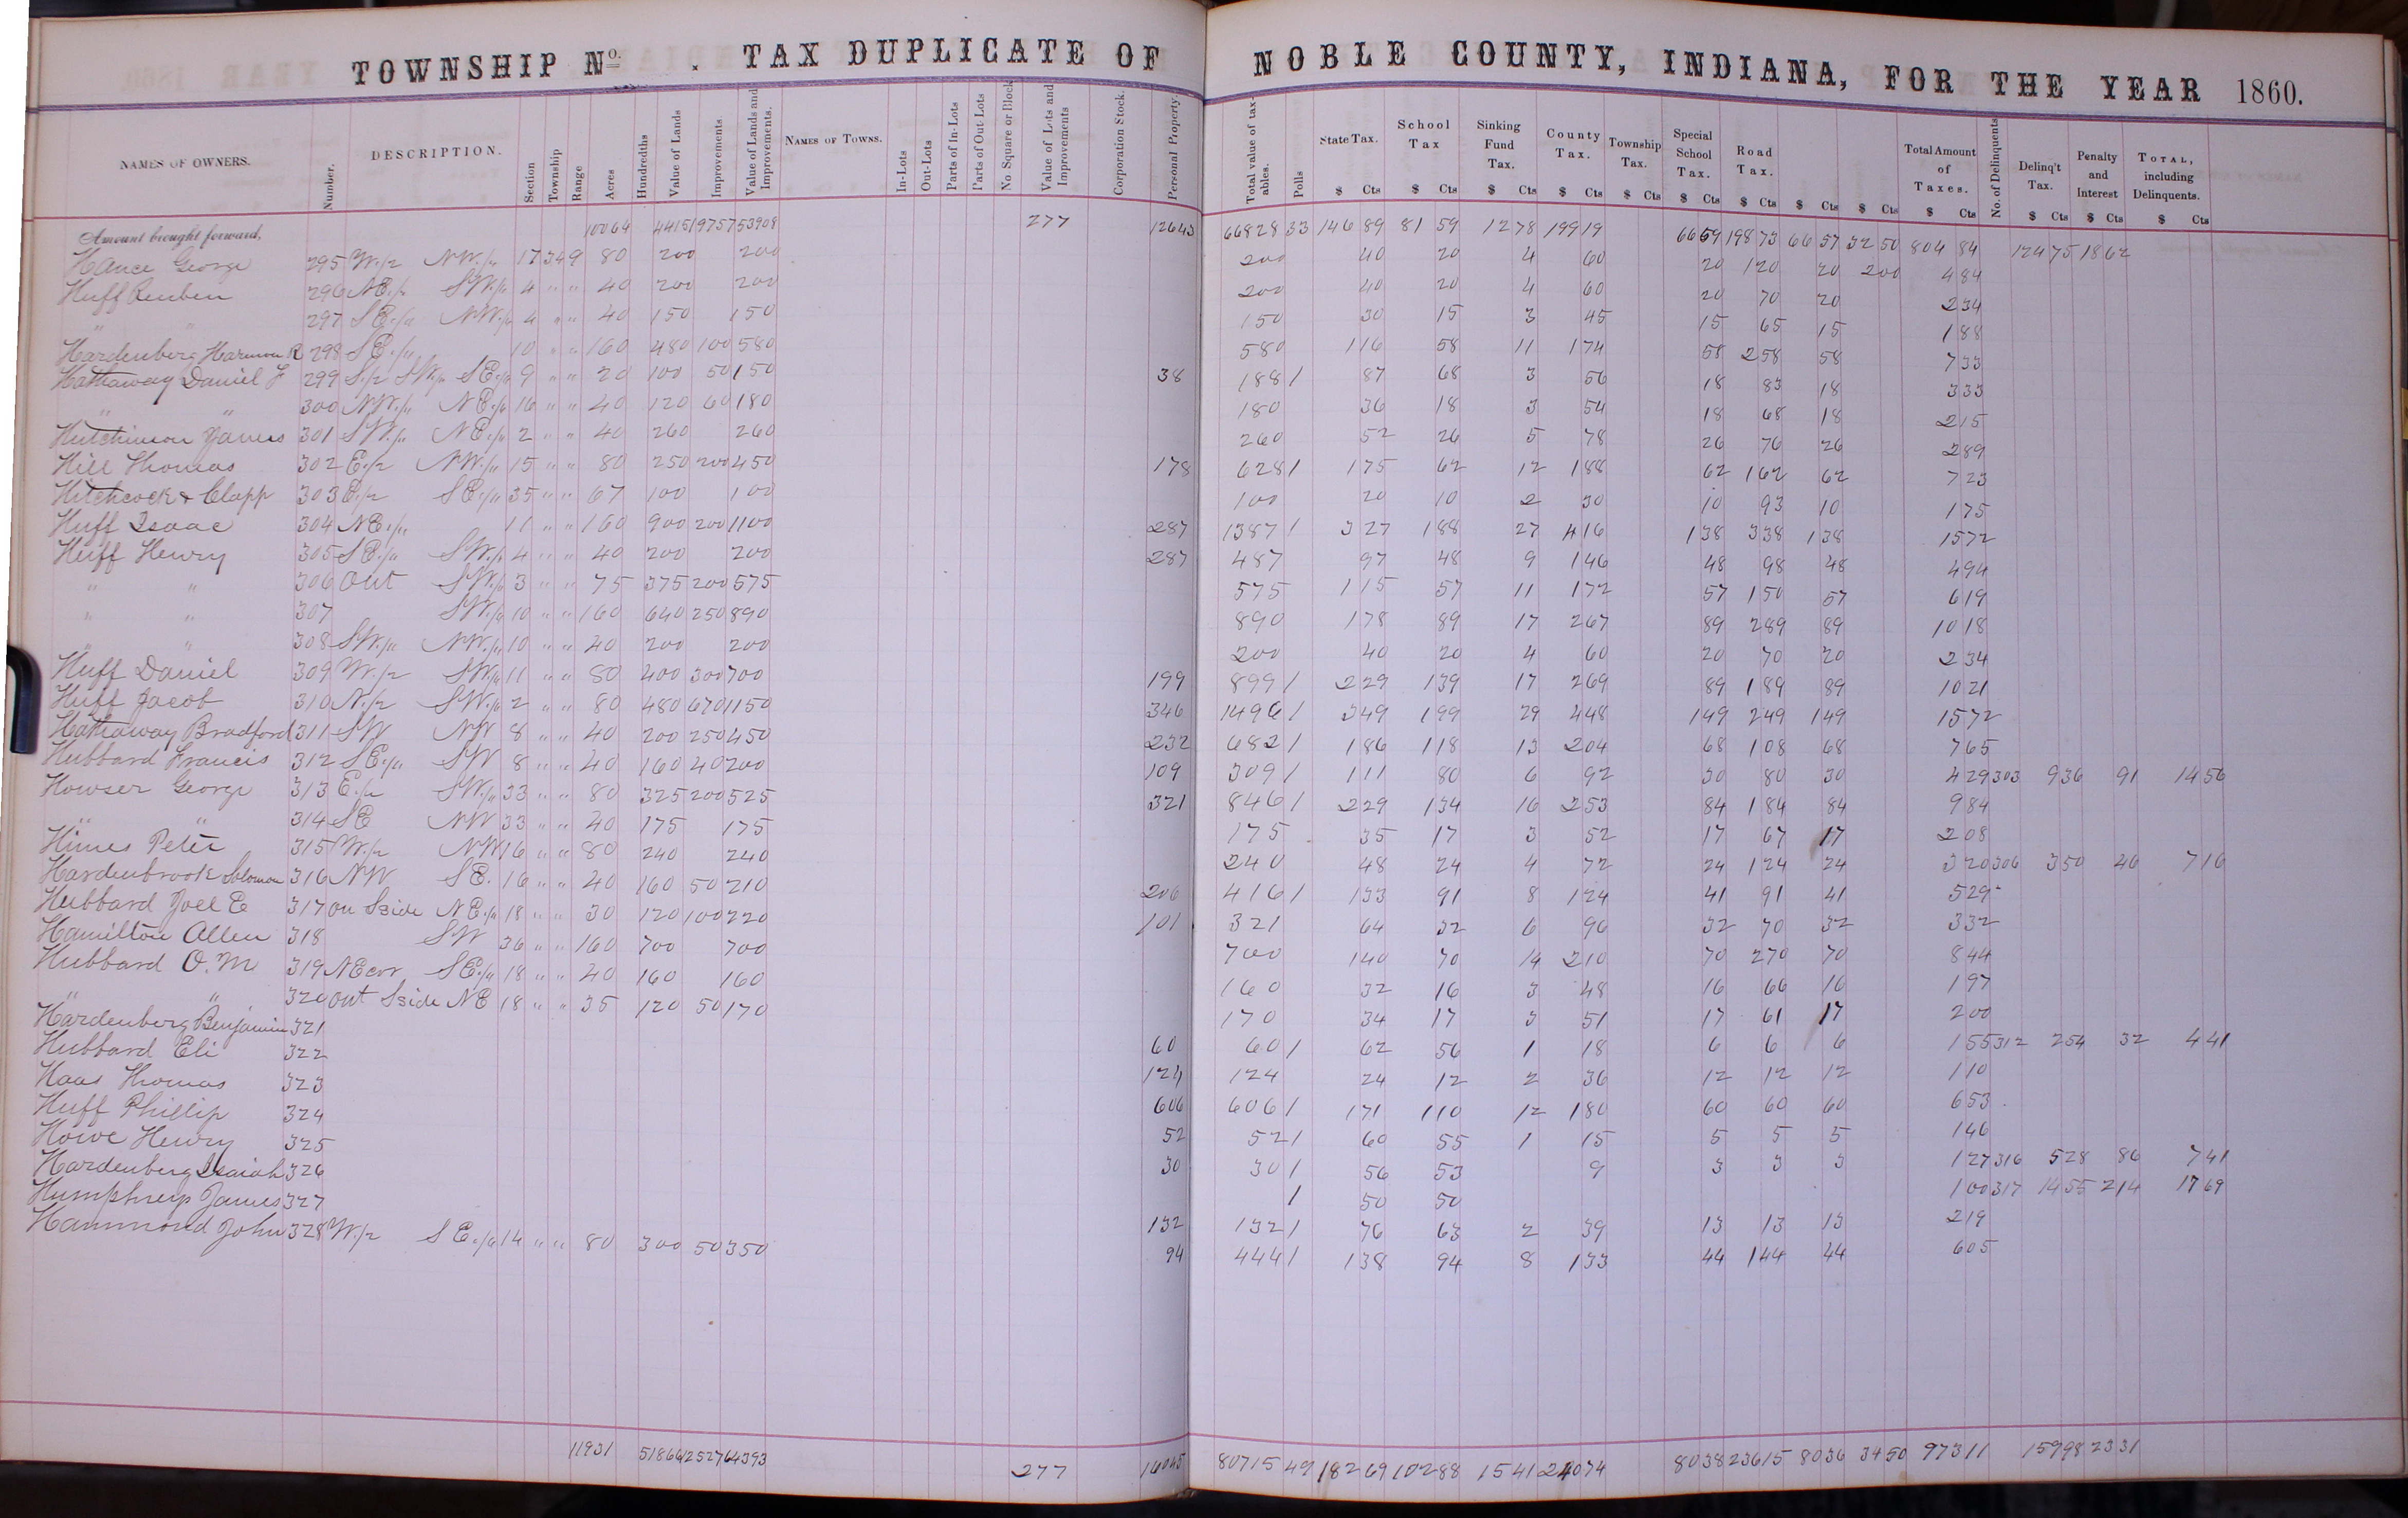 TOWNSHIP No. . TAX DUPLICATE OF NOBLE COUNTY, INDIANA, FOR THE YEAR 1860.
NAMES OF OWNERS. Number. DESCRIPTION. Section Township Range Acres Hundredths Value of Lands Improvements. Value of Lands and Improvements. NAMES OF TOWNS. In-Lots Out-Lots Parts of In-Lots Parts of Out-Lots No. Square or Block Value of Lots and Improvements Corporation Stock. Personal Property. Total value of taxables. Polls State Tax. School Tax Sinking Fund Tax. County Tax. Township Tax. Special School Tax. Road Tax. Total Amount of Taxes. No. of Delinquents Delinq't Tax. Penalty and Interest TOTAL, including Delinquents.
$ Cts $ Cts $ Cts $ Cts $ Cts $ Cts $ Cts $ Cts $ Cts $ Cts $ Cts $ Cts $ Cts
Amount brought forward, 10064 44151 9757 53908 277 12643 66828 33 146 89 81 59 12 78 199 19 66 59 198 73 66 57 32 50 804 84 124 75 18 62
Hance George 295 W./2 NW./4 17 34 9 80 200 200 200 40 20 4 60 20 120 20 200 484
Huff Reuben 296 NE./4 SW./4 4 " " 40 200 200 200 40 20 4 60 20 70 20 234
" " 297 SE./4 NW./4 4 " " 40 150 150 150 30 15 3 45 15 65 15 188
Hardenberg Harmon R 298 SE./4 10 " " 160 480 100 580 580 116 58 11 174 58 258 58 733
Hathaway Daniel F 299 S./2 SW./4 SE./4 9 " " 20 100 50 150 38 188 1 87 68 3 56 18 83 18 333
" " 300 NW./4 NE./4 16 " " 40 120 60 180 180 36 18 3 54 18 68 18 215
Hutchinson James 301 SW./4 NE./4 2 " " 40 260 260 260 52 26 5 78 26 76 26 289
Hill Thomas 302 E./2 NW./4 15 " " 80 250 200 450 178 628 1 175 62 12 188 62 162 62 723
Hitchcock & Clapp 303 E./2 SE./4 35 " " 67 100 100 100 20 10 2 30 10 93 10 175
Huff Isaac 304 NE./4 11 " " 160 900 200 1100 287 1387 1 327 188 27 416 138 338 138 1572
Huff Henry 305 SE./4 SW./4 4 " " 40 200 200 287 487 97 48 9 146 48 98 48 494
" " 306 Out SW./4 3 " " 75 375 200 575 575 115 57 11 172 57 150 57 619
" " 307 SW./4 10 " " 160 640 250 890 890 178 89 17 267 89 289 89 1018
" " 308 SW./4 NW./4 10 " " 40 200 200 200 40 20 4 60 20 70 20 234
Huff Daniel 309 W./2 SW./4 11 " " 80 400 300 700 199 899 1 229 139 17 269 89 189 89 1021
Huff Jacob 310 N./2 SW./4 2 " " 80 480 670 1150 346 1496 1 349 199 29 448 149 249 149 1572
Hathaway Bradford 311 SW NW 8 " " 40 200 250 450 232 682 1 186 118 13 204 68 108 68 765
Hubbard Francis 312 SE./4 SW 8 " " 40 160 40 200 109 309 1 111 80 6 92 30 80 30 429 303 936 91 1456
Howser George 313 E./2 SW./4 33 " " 80 325 200 525 321 846 1 229 134 16 253 84 184 84 984
" " 314 SE NW 33 " " 40 175 175 175 35 17 3 52 17 67 17 208
Himes Peter 315 W./2 NW 16 " " 80 240 240 240 48 24 4 72 24 124 24 320 306 350 46 716
Hardenbrook Solomon 316 NW SE. 16 " " 40 160 50 210 206 416 1 133 91 8 124 41 91 41 529
Hubbard Joel E 317 on Sside NE./4 18 " " 30 120 100 220 101 321 64 32 6 96 32 70 32 332
Hamilton Allen 318 SW 36 " " 160 700 700 700 140 70 14 210 70 270 70 844
Hubbard O. M 319 NEcor SE./4 18 " " 40 160 160 160 32 16 3 48 16 66 16 197
" " 320 out Sside NE 18 " " 35 120 50 170 170 34 17 3 51 17 61 17 200
Hardenberg Benjamin 321 60 60 1 62 56 1 18 6 6 6 155 312 254 32 441
Hubbard Eli 322 124 124 24 12 2 36 12 12 12 110
Haas Thomas 323 606 606 1 171 110 12 180 60 60 60 653
Huff Phillip 324 52 52 1 60 55 1 15 5 5 5 146
Howe Henry 325 30 30 1 56 53 9 3 3 3 127 316 528 86 741
Hardenberg Isaiah 326 1 50 50 100 317 1455 214 1769
Humphrey James 327 132 132 1 76 63 2 39 13 13 13 219
Hammond John 328 W./2 SE./4 14 " " 80 300 50 350 94 444 1 138 94 8 133 44 144 44 605
11931 51866 12527 64393 277 16045 80715 49 182 69 102 88 15 41 240 74 80 38 236 15 80 36 34 50 973 11 159 98 23 31